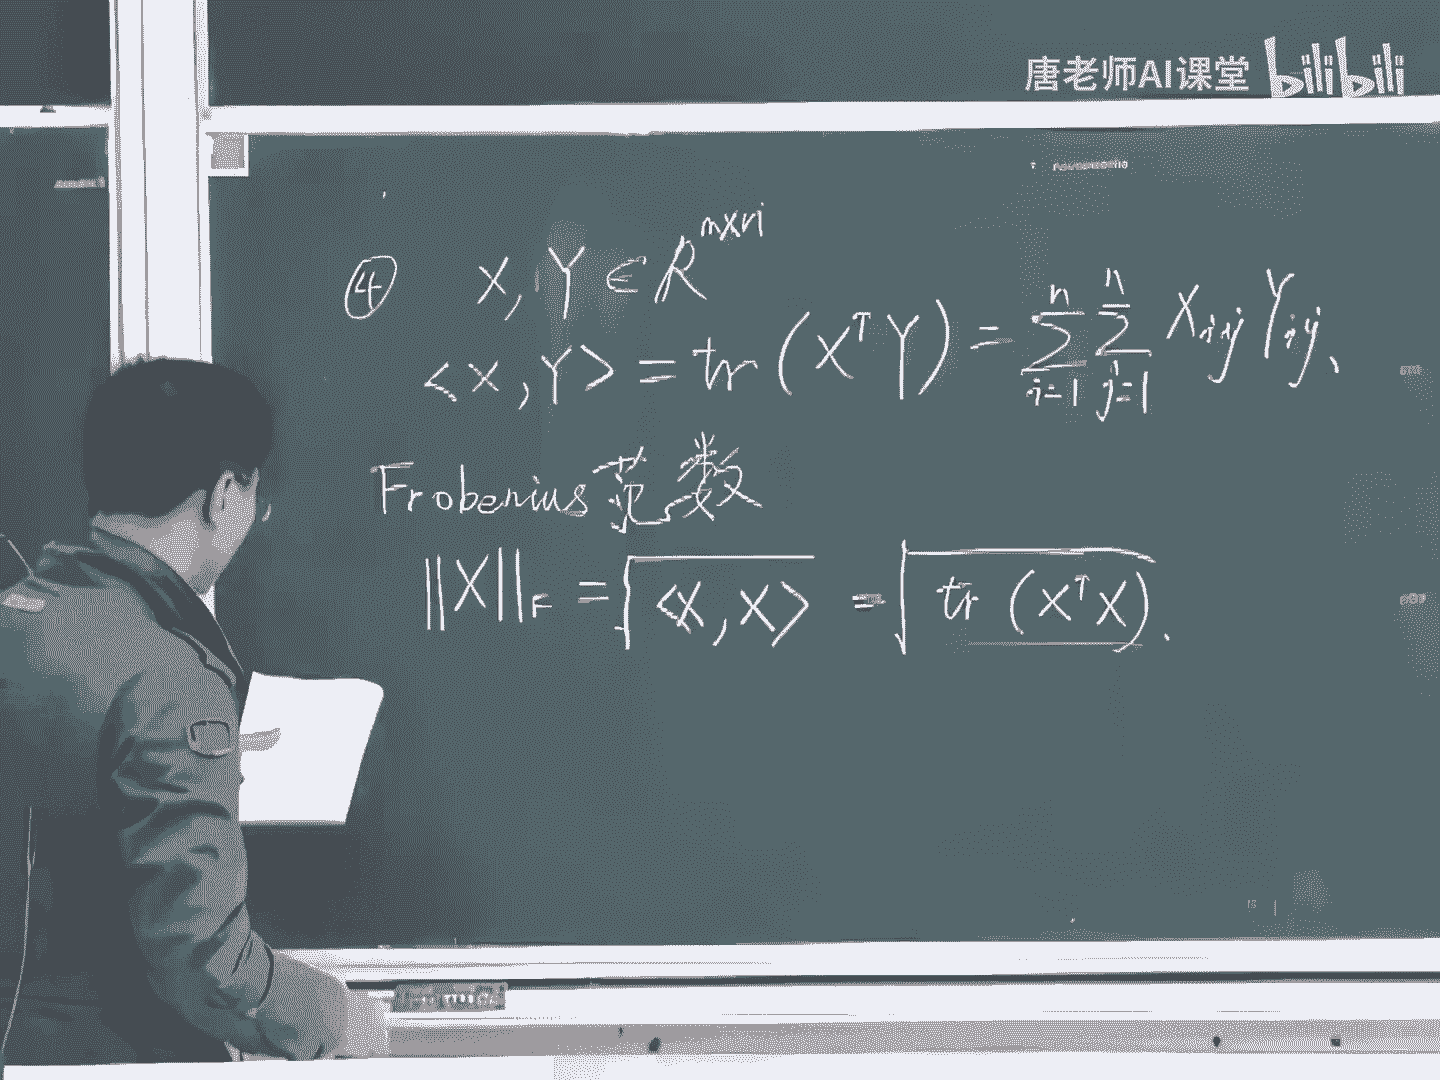 唐老师AI课堂 bilibili
④ X, Y ∈ R^{n×n}
<X, Y> = tr (X^T Y) = \sum_{i=1}^{n} \sum_{j=1}^{n} X_{ij} Y_{ij}、
Frobenius范数
||X||_F = \sqrt{<X, X>} = \sqrt{tr (X^T X)}.